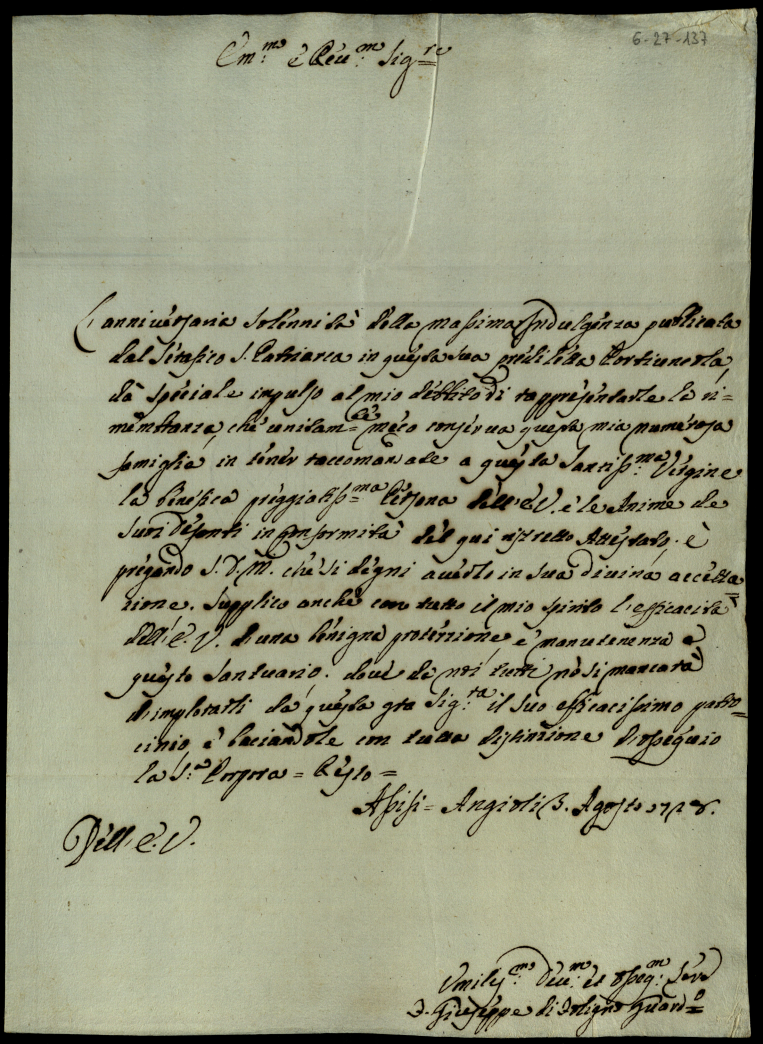 6-27-137
Em.mo è Reu.mo Sig.re
L'anniversaria solennità della massima Indulgenza publicata
dal Serafico S. Patriarca in questa sua prediletta Portiuncola,
dà speciale impulso al mio debbito di rappresentarle la ri=
membranza, che unitam.te meco conserva questa mia numerosa
famiglia in tener raccomandate a questa Santiss.ma Vergine
la benefica preggiatiss.ma Persona dell'E.V. è le Anime de
suoi Defonti in conformità del qui ristretto Attestato. è
pregando S. D. M. che si degni averlo in sua divina accetta=
zione. Supplico anche con tutto il mio spirito l'efficacità
dell'E. V. d'una benigna protezzione è manutenenza à
questo Santuario. dove da noi tutti nò si mancarà
d'implorarli da questa gra Sig.ra il suo efficacissimo patro=
cinio, è baciandole con tutta distinzione d'ossequio
la S.a Porpora = Resto =
Assisi = Angioli 3. Agosto 1728.
Dell'E. V.
Umiliss.mo Deu.mo et osseq.mo Serv
F. Giuseppe di Foligno Guard.o